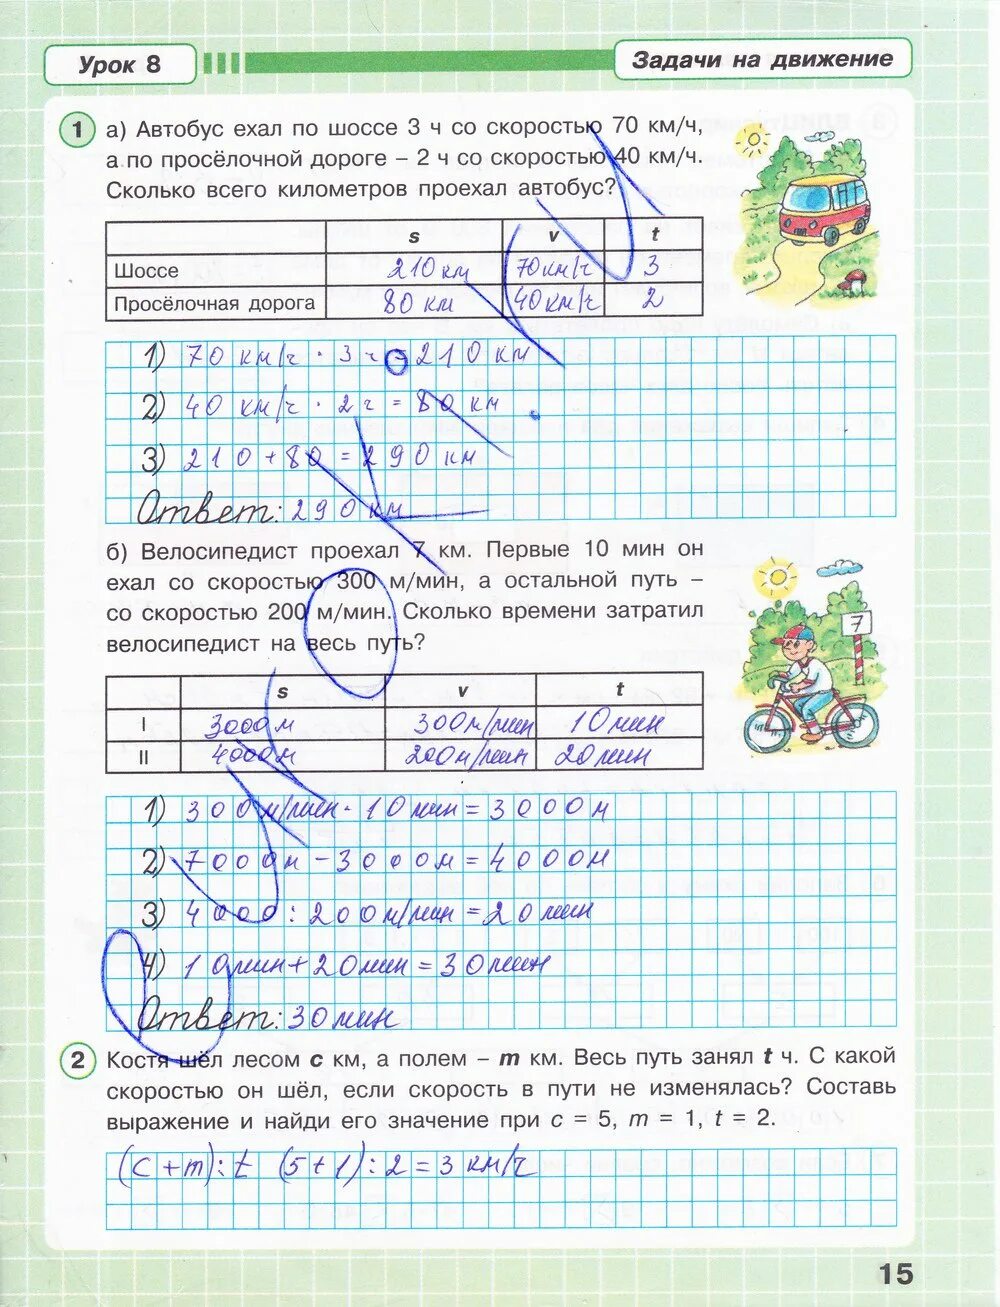 Урок 8
Задачи на движение
1 а) Автобус ехал по шоссе 3 ч со скоростью 70 км/ч,
а по просёлочной дороге – 2 ч со скоростью 40 км/ч.
Сколько всего километров проехал автобус?
s v t
Шоссе 210 км 70 км/ч 3
Просёлочная дорога 80 км 40 км/ч 2
1) 70 км/ч · 3 ч = 210 км
2) 40 км/ч · 2 ч = 80 км
3) 210 + 80 = 290 км
Ответ: 290 км
б) Велосипедист проехал 7 км. Первые 10 мин он
ехал со скоростью 300 м/мин, а остальной путь –
со скоростью 200 м/мин. Сколько времени затратил
велосипедист на весь путь?
7
s v t
I 3000м 300м/мин 10мин
II 4000м 200м/мин 20мин
1) 300м/мин · 10мин = 3000м
2) 7000м – 3000м = 4000м
3) 4000 : 200м/мин = 20мин
4) 10мин + 20мин = 30мин
Ответ: 30мин
2 Костя шёл лесом c км, а полем – m км. Весь путь занял t ч. С какой
скоростью он шёл, если скорость в пути не изменялась? Составь
выражение и найди его значение при c = 5, m = 1, t = 2.
(c + m) : t (5 + 1) : 2 = 3 км/ч
15